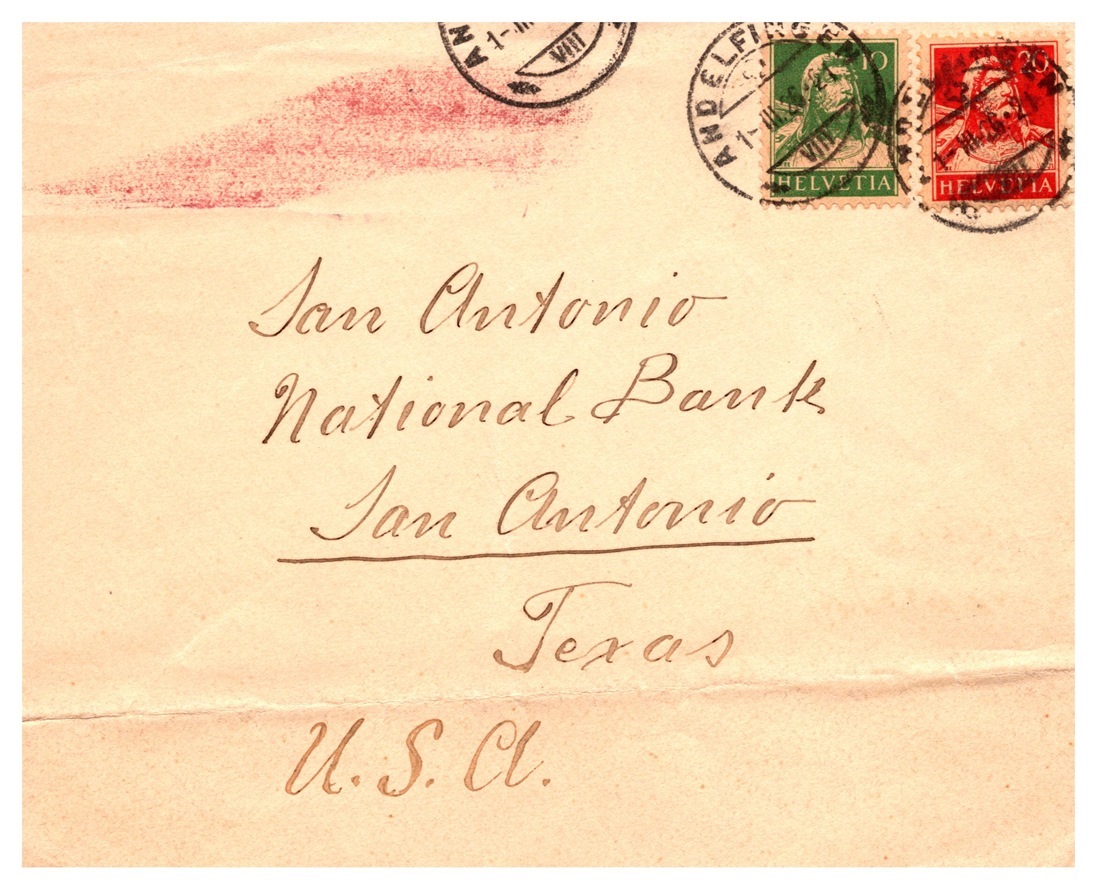 AN
1-III
VIII
ANDELFINGEN
1-III.26-21
VIII
10
HELVETIA
20
HELVETIA
San Antonio
National Bank
San Antonio
Texas
U. S. A.